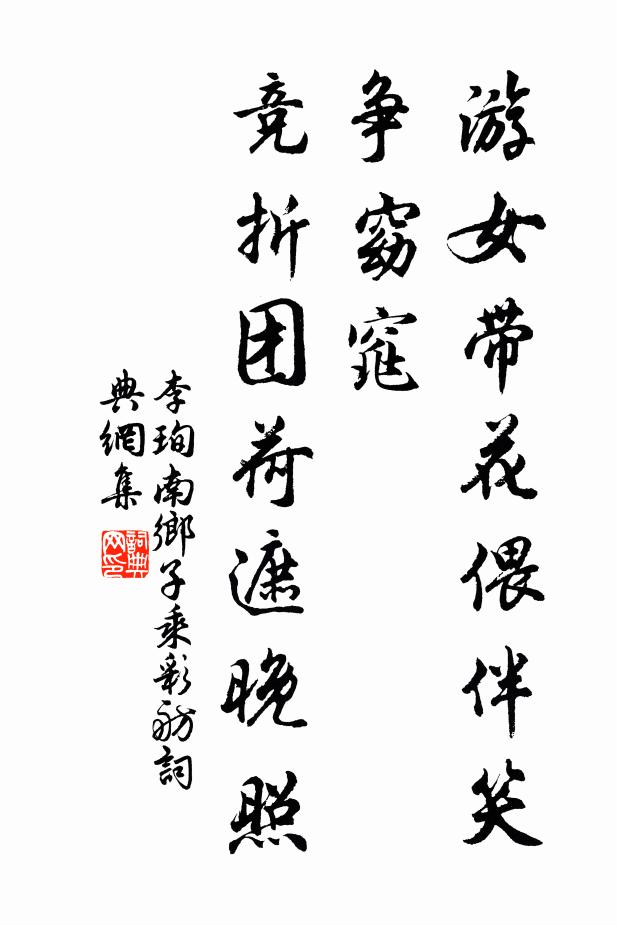 游女带花偎伴笑
争窈窕
竞折团荷遮晚照
李珣南鄉子乘彩舫詞
典網集
詞典网印